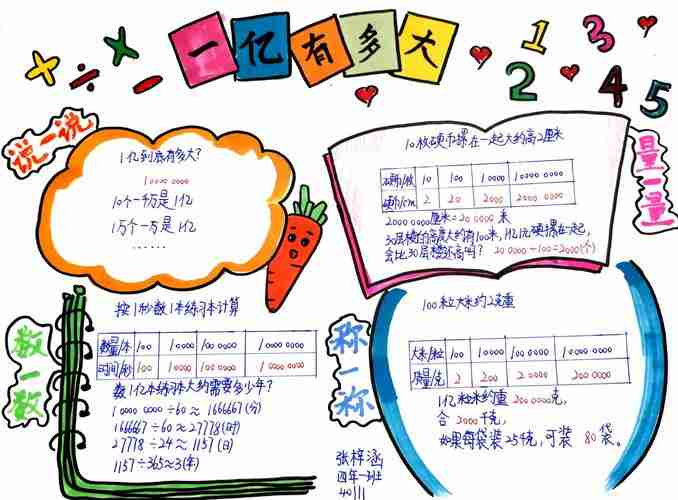 一亿有多大
+ ÷ × −
1 2 3 4 5
说一说
1亿到底有多大?
1 0000 0000
10个一千万是1亿
1万个一万是1亿
……
量一量
10枚硬币摞在一起大约高2厘米
硬币/枚 10 100 10000 10000 0000
/cm 2 20 2000 2000 0000
2000 0000厘米=20 0000 米
30层楼的高度大约有100米,1亿元硬币摞在一起,
会比30层楼还高吗? 20 0000÷100=2000(个)
数一数
按1秒数1本练习本计算
数量/本 100 1 0000 100 0000 1 0000 0000
时间/秒 100 1 0000 100 0000 1 0000 0000
数1亿本练习本大约需要多少年?
1 0000 0000÷60≈1666667(分)
1666667÷60≈27778(时)
27778÷24≈1157(日)
1157÷365≈3(年)
称一称
100粒大米约2克重
大米/粒 100 1 0000 100 0000 1 0000 0000
质量/克 2 200 2 0000 200 0000
1亿粒米约重 200 0000克,
合 2000 千克,
如果每袋装25千克,可装 80 袋。
张梓涵
四年一班
40川